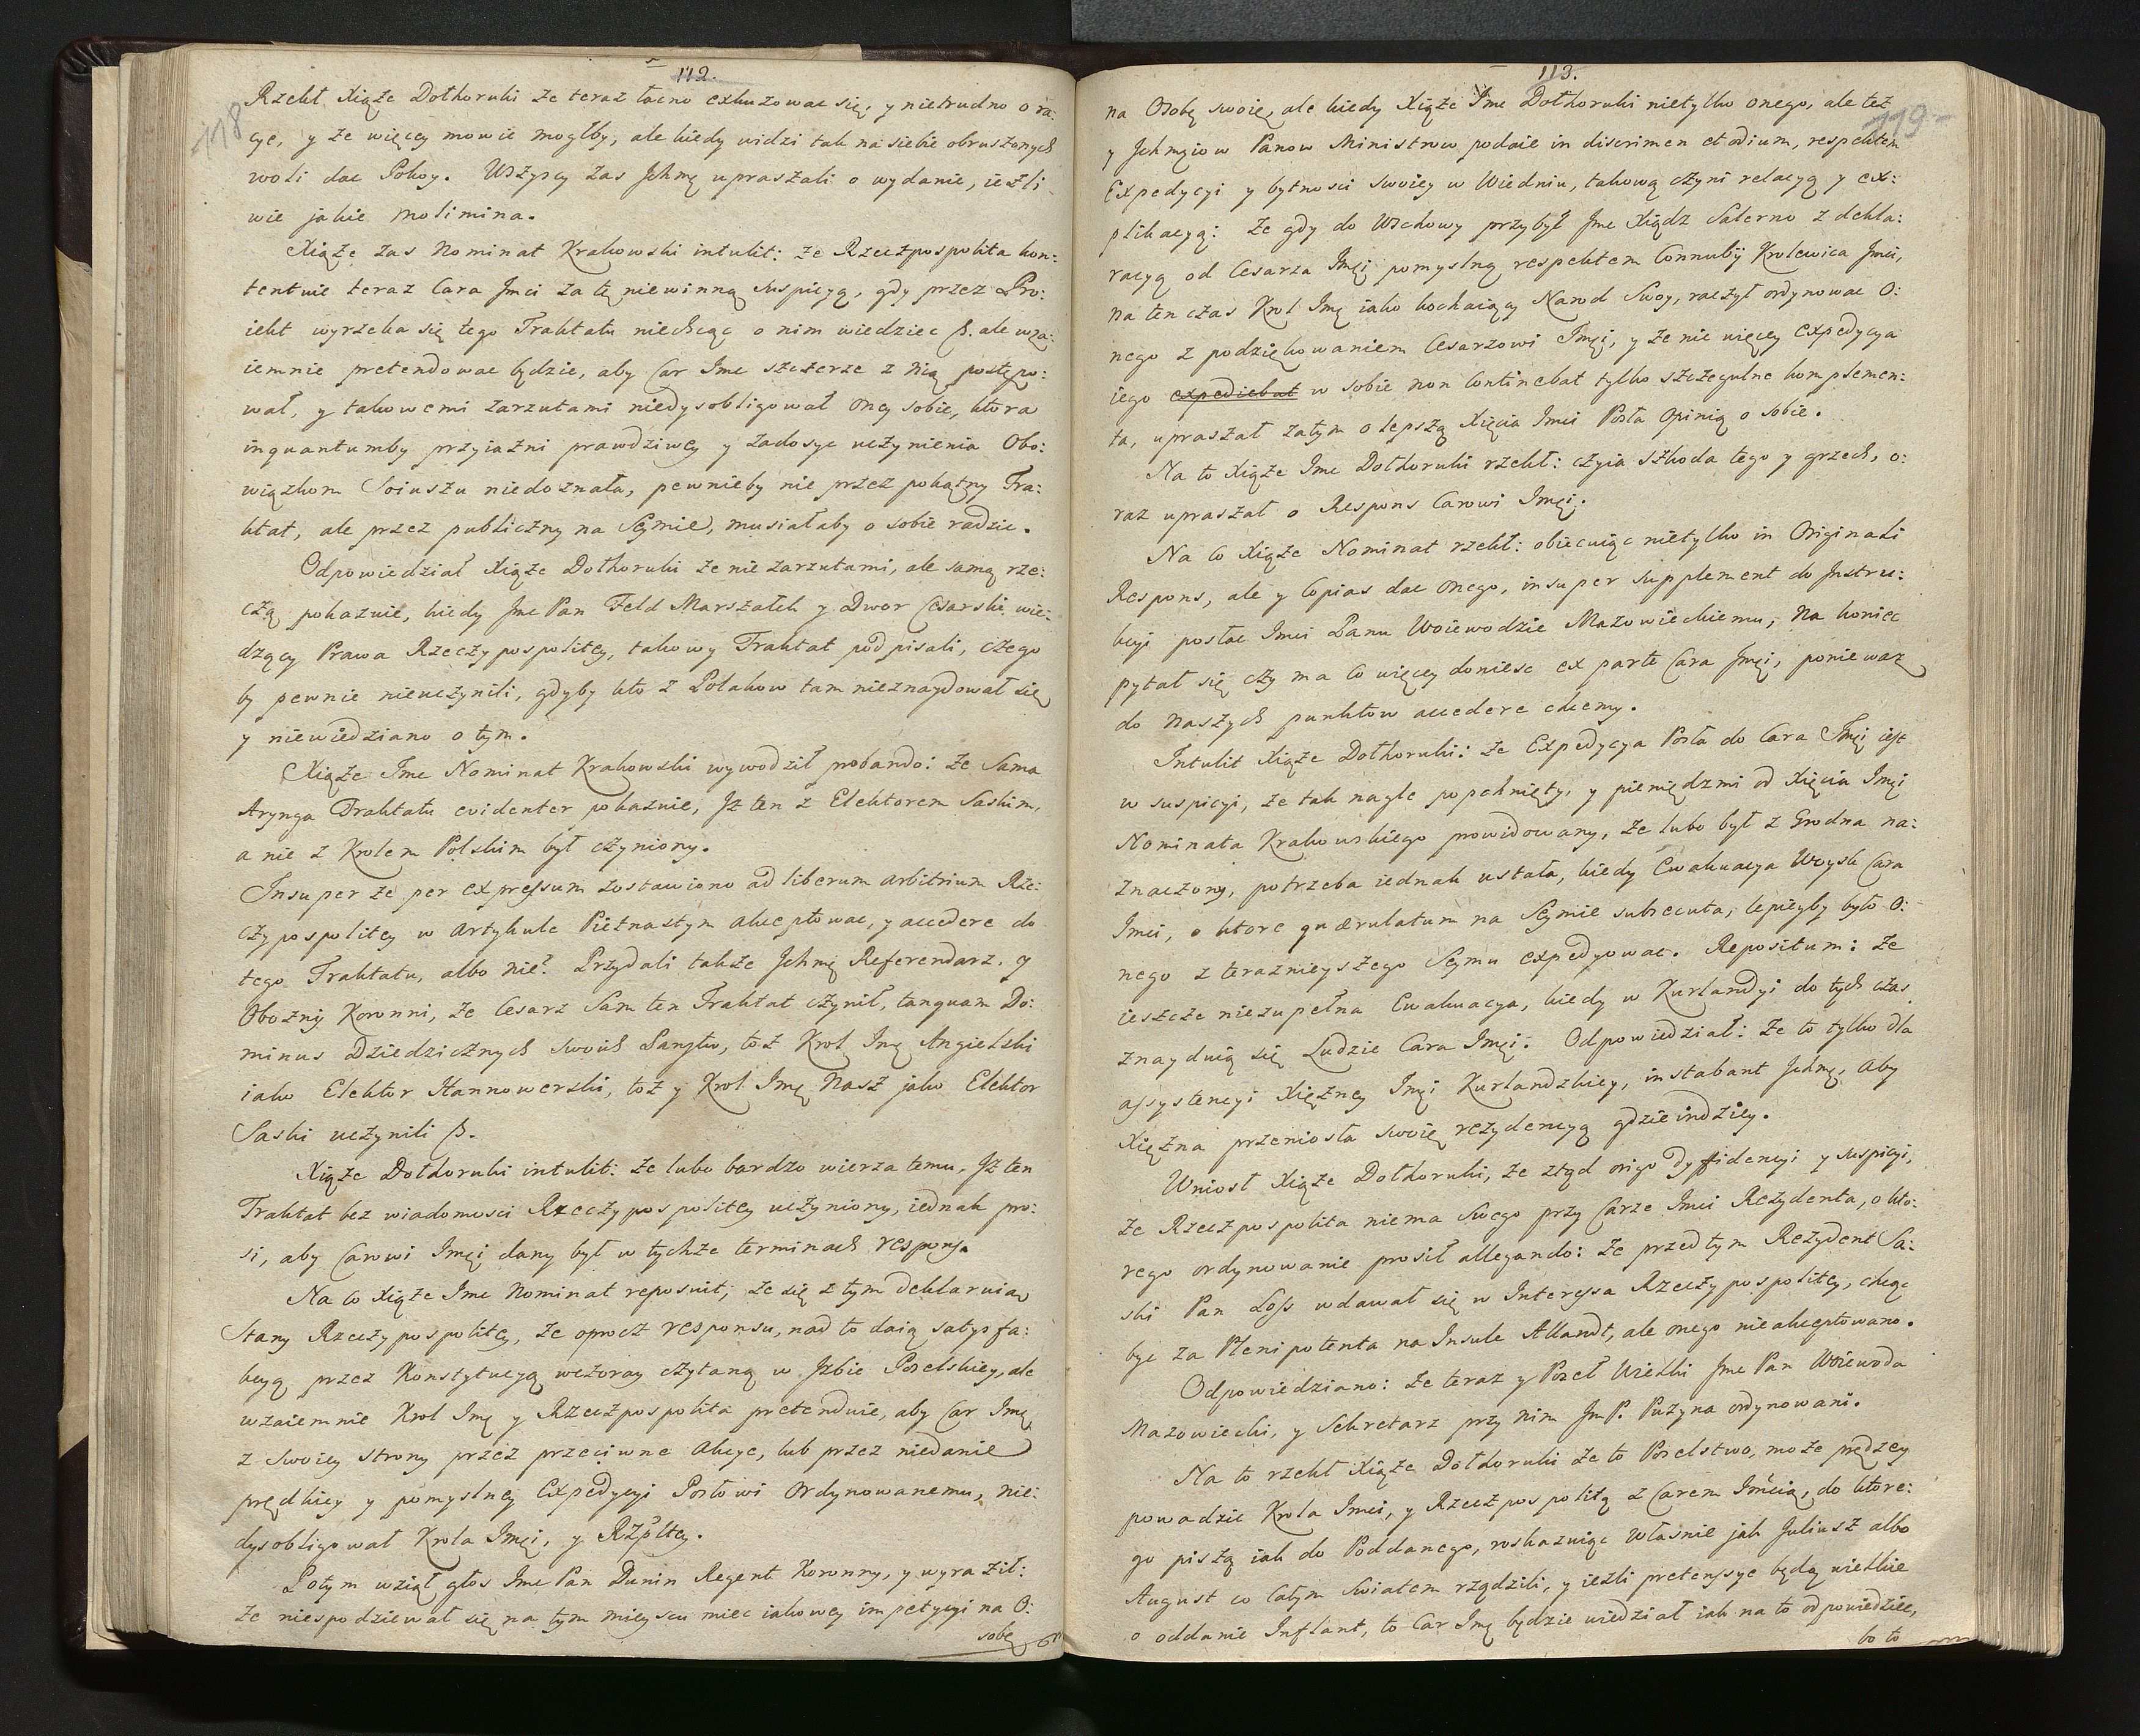 112.
118
Rzekł Xiąże Dołhoruki że teraz łacno exkuzować się, y nietrudno o ra:
cye, y że więcey mowić mogłby, ale kiedy widzi tak na siebie obruszonych
woli dać Pokoy. Wszyscy zas Jchmę upraszali o wydanie, ieżli
wie jakie molimina.
Xiąże zas Nominat Krakowski intulit: że Rzeczpospolita kon:
tentuie teraz Cara Jmci za tę niewinną suspicyą, gdy przez Pro:
iekt wyrzeka się tego Traktatu niechcąc o nim wiedziec &. ale wza:
iemnie pretendowac będzie, aby Car Jmc szczerze z nią postępo:
wał, y takowemi zarzutami niedysobligował oney sobie, ktora
inquantumby przyiazni prawdziwey y zadosyc uczynienia Obo:
wiązkom Soiuszu niedoznała, pewnieby nie przez pokątny Tra:
ktat, ale przez publiczny na Seymie, musiałaby o sobie radzic.
Odpowiedział Xiąże Dołhoruki że nie zarzutami, ale samą rze:
czą pokazuie, kiedy Jmc Pan Feld Marszałek y Dwor Cesarski wie:
dzący Prawa Rzeczypospolitey, takowy Traktat podpisali, czego
by pewnie nieuczynili, gdyby kto z Polakow tam nieznaydował się
y niewiedziano o tym.
Xiąże Jmc Nominat Krakowski wywodził probando: że sama
Arynga Traktatu evidenter pokazuie, Jż ten z Elektorem Saskim,
a nie z Krolem Polskim był czyniony.
Insuper że per expressum zostawiono ad liberum arbitrium Rze:
czypospolitey w Artykule Piętnastym akceptowac, y accedere do
tego Traktatu, albo nie? Przydali także Jchmę Referendarz, y
Obozny Koronni, że Cesarz Sam ten Traktat czynił, tanquam Do:
minus Dziedzicznych swoich Panstw, toż Krol Jmę Angielski
iako Elektor Hannowerski, toż y Krol Jmę Nasz jako Elektor
Saski uczynili &.
Xiąże Dołhoruki intulit: że lubo bardzo wierza temu, Jż ten
Traktat bez wiadomosci Rzeczypospolitey uczyniony, iednak pro:
si, aby Carowi Jmci dany był w tychże terminach respons.
Na co Xiąże Jmc Nominat reposuit; że się z tym deklaruią
Stany Rzeczypospolitey, że oprocz responsu, nad to daią satysfa:
kcyą przez Konstytucyą wczoray czytaną w Jzbie Poselskiey, ale
wzaiemnie Krol Jmę y Rzeczpospolita pretenduie, aby Car Jmę
z swoiey strony przez przeciwne akcye, lub przez niedanie
prędkiey y pomyslney Expedycyi Posłowi ordynowanemu, nie:
dysobligował Krola Jmci, y Rzpltey.
Potym wziął głos Jmc Pan Dunin Regent Koronny, y wyraził:
że niespodziewał się na tym mieyscu miec iakowey impetycyi na O:
sobę
113.
119
na Osobę swoię, ale kiedy Xiąże Jmc Dołhoruki nietylko onego, ale też
y Jchmciow Panow Ministrow podaie in discrimen et odium, respektem
Expedycyi y bytnosci swoiey w Wiedniu, takową czyni relacyą y ex:
plikacyą: że gdy do Wschowy przybył Jmc Xiądz Salerno z dekla:
racyą od Cesarza Jmci pomyslną respektem Connubij Krolewica Jmci,
na ten czas Krol Jmę iako kochaiący Narod Swoy, raczył ordynowac O:
nego z podziękowaniem Cesarzowi Jmci, y że nic więcey expedycya
iego expediebat w sobie non continebat tylko szczegulne komplemen:
ta, upraszał zatym o lepszą Xięcia Jmci Posła Opinią o sobie.
Na to Xiąże Jmc Dołhoruki rzekł: czyia szkoda tego y grzech, o:
raz upraszał o Respons Carowi Jmci.
Na co Xiąże Nominat rzekł: obiecuiąc nietylko in Originali
Respons, ale y Copias dac onego, insuper supplement do Jnstru:
kcyi posłac Jmci Panu Woiewodzie Mazowieckiemu, na koniec
pytał się czy ma co więcey doniesc ex parte Cara Jmci, poniewaz
do naszych punktow accedere chcemy.
Intulit Xiąże Dołhoruki: że Expedycya Posła do Cara Jmci iest
w suspicyi, że tak nagle popchnięty, y pieniędzmi od Xięcia Jmci
Nominata Krakowskiego prowidowany, że lubo był z Grodna na:
znaczony, potrzeba iednak ustała, kiedy Ewakuacya Woysk Cara
Jmci, o ktore quærulatum na Seymie subsecuta, lepieyby było O:
nego z teraznieyszego Seymu expedyowac. Repositum: że
ieszcze niezupełna Ewakuacya, kiedy w Kurlandyi do tych czas
znayduią się Ludzie Cara Jmci. Odpowiedział: że to tylko dla
assystencyi Xiężney Jmci Kurlandzkiey, instabant Jchmę, Aby
Xiężna przeniosła swoię rezydencyą gdzieindziey.
Wniosł Xiąże Dołhoruki, że ztąd origo dyffidencyi y suspicyi,
że Rzeczpospolita niema swego przy Carze Jmci Rezydenta, o kto:
rego ordynowanie prosił allegando: że przedtym Rezydent Sa:
ski Pan Loss wdawał się w Interessa Rzeczypospolitey, chcąc
bydz za Plenipotenta na Insule Allandt, ale onego nieakceptowano.
Odpowiedziano: że teraz y Poseł Wielki Jmc Pan Woiewoda
Mazowiecki, y Sekretarz przy nim JmP. Puzyna ordynowani.
Na to rzekł Xiąże Dołhoruki że to Poselstwo, może prędzey
powadzic Krola Jmci, y Rzeczpospolitą z Carem Jmcią, do ktore:
go piszą iak do Poddanego, roskazuiąc własnie jak Juliusz albo
August co całym swiatem rządzili, y ieżli pretensye będą wielkie
o oddanie Inflant, to Car Jmę będzie wiedział iak na to odpowiedziec,
bo to